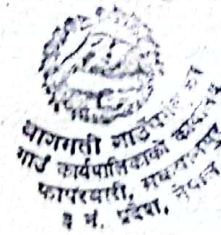 बागमती गाउँपालिका
गाउँ कार्यपालिकाको कार्यालय
फापरवारी, मकवानपुर
३ नं. प्रदेश, नेपाल